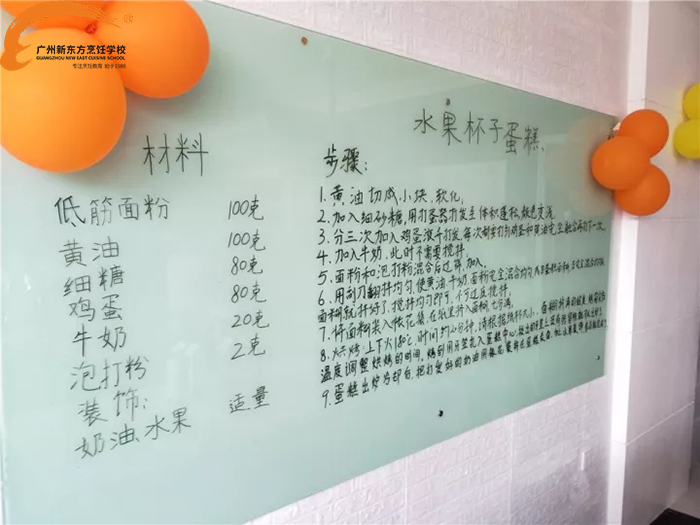 广州新东方烹饪学校
GUANGZHOU NEW EAST CUISINE SCHOOL
专注烹饪教育 始于1988
水果杯子蛋糕
材料
低筋面粉 100克
黄油 100克
细糖 80克
鸡蛋 80克
牛奶 20克
泡打粉 2克
装饰: 适量
奶油、水果
步骤:
1. 黄油切成小块, 软化,
2. 加入细砂糖, 用打蛋器打发至体积蓬松, 颜色变浅
3. 分三次加入鸡蛋液打发, 每次都要打到鸡蛋和黄油完全融合再打下一次
4. 加入牛奶, 此时不需要搅拌
5. 面粉和泡打粉混合后过筛, 加入
6. 用刮刀翻拌均匀, 使黄油、牛奶、面粉完全混合均匀
面糊就拌好了, 搅拌均匀即可, 不可过度搅拌,
7. 将面糊装入裱花袋, 在纸杯挤入面糊 七分满
8. 烘烤 上下火180℃, 时间约 分钟, 请根据纸杯大小、
温度调整烘烤的时间, 烤到用牙签扎入蛋糕中心,
9. 蛋糕出炉冷却后, 把打发好的奶油用裱花袋挤在蛋糕表面,